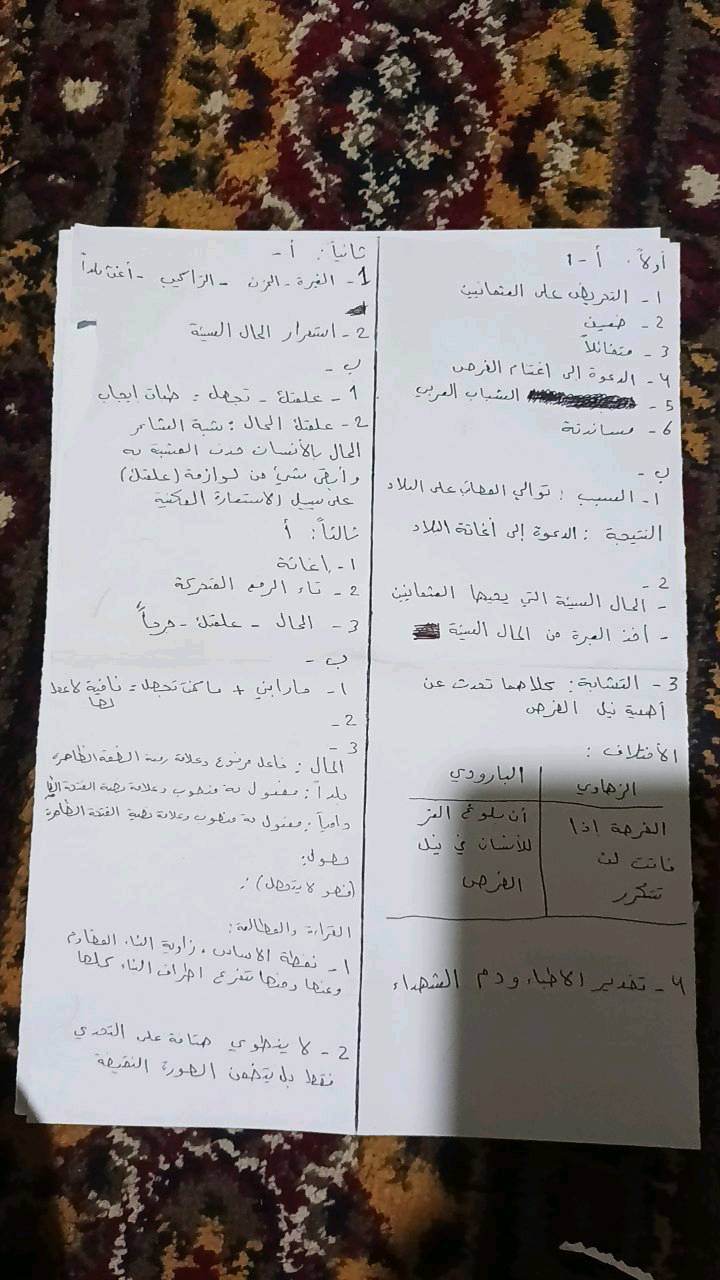 أولاً: أ - 1
1 - التحريض على العثمانيين
2 - ضمين
3 - متفائلاً
4 - الدعوة إلى اغتنام الفرص
5 - الشباب العربي
6 - مساندته
ب -
1 - السبب : توالي المصائب على البلاد
النتيجة : الدعوة إلى أغاثة البلاد
2 -
- الحال السيئة التي يعيها العثمانيين
- أخذ العبرة من الحال السيئة
3 - التشابة : كلاهما تحدث عن
أهمية نيل الفرص
الأختلاف :
الزهاوي
البارودي
الفرصة إذا
فاتت لن
تتكرر
أن بلوغ العز
للأنسان في نيل
الفرص
4 - تقدير الأطباء ودم الشهداء
ثانياً : أ -
1 - الفترة - الزمن - التراكيب - أغث بلداً
2 - استمرار الحال السيئة
ب -
1 - علمتك - تجهل = طباق ايجاب
2 - علمتك الحال : شبة الشاعر
الحال بالأنسان حذف المشبه به
وأبقى شيئ من لوازمة (علمتك)
على سبيل الاستعارة المكنية
ثالثاً : أ
1 - إغاثة
2 - تاء الرفع المتحركة
3 - الحال - علمتك - حرماً
ب -
1 - مارابني + ما كنت تجهل = نافية لاعمل
لها
2 -
3 -
الحال : فاعل مرفوع وعلامة رفعة الضمة الظاهرة
بلداً : مفعول به منصوب وعلامة نصبة الفتحة
دامياً : مفعول به منصوب وعلامة نصبة الفتحة الظاهرة
القراءة والمطالعة :
1 - نقطة الاساس ، زاوية البناء المقاوم
وعنها ومنها تتفرع اطراف البناء كلها
2 - لا ينطوي على التحدي
فقط بل يتضمن الصورة النقيضة